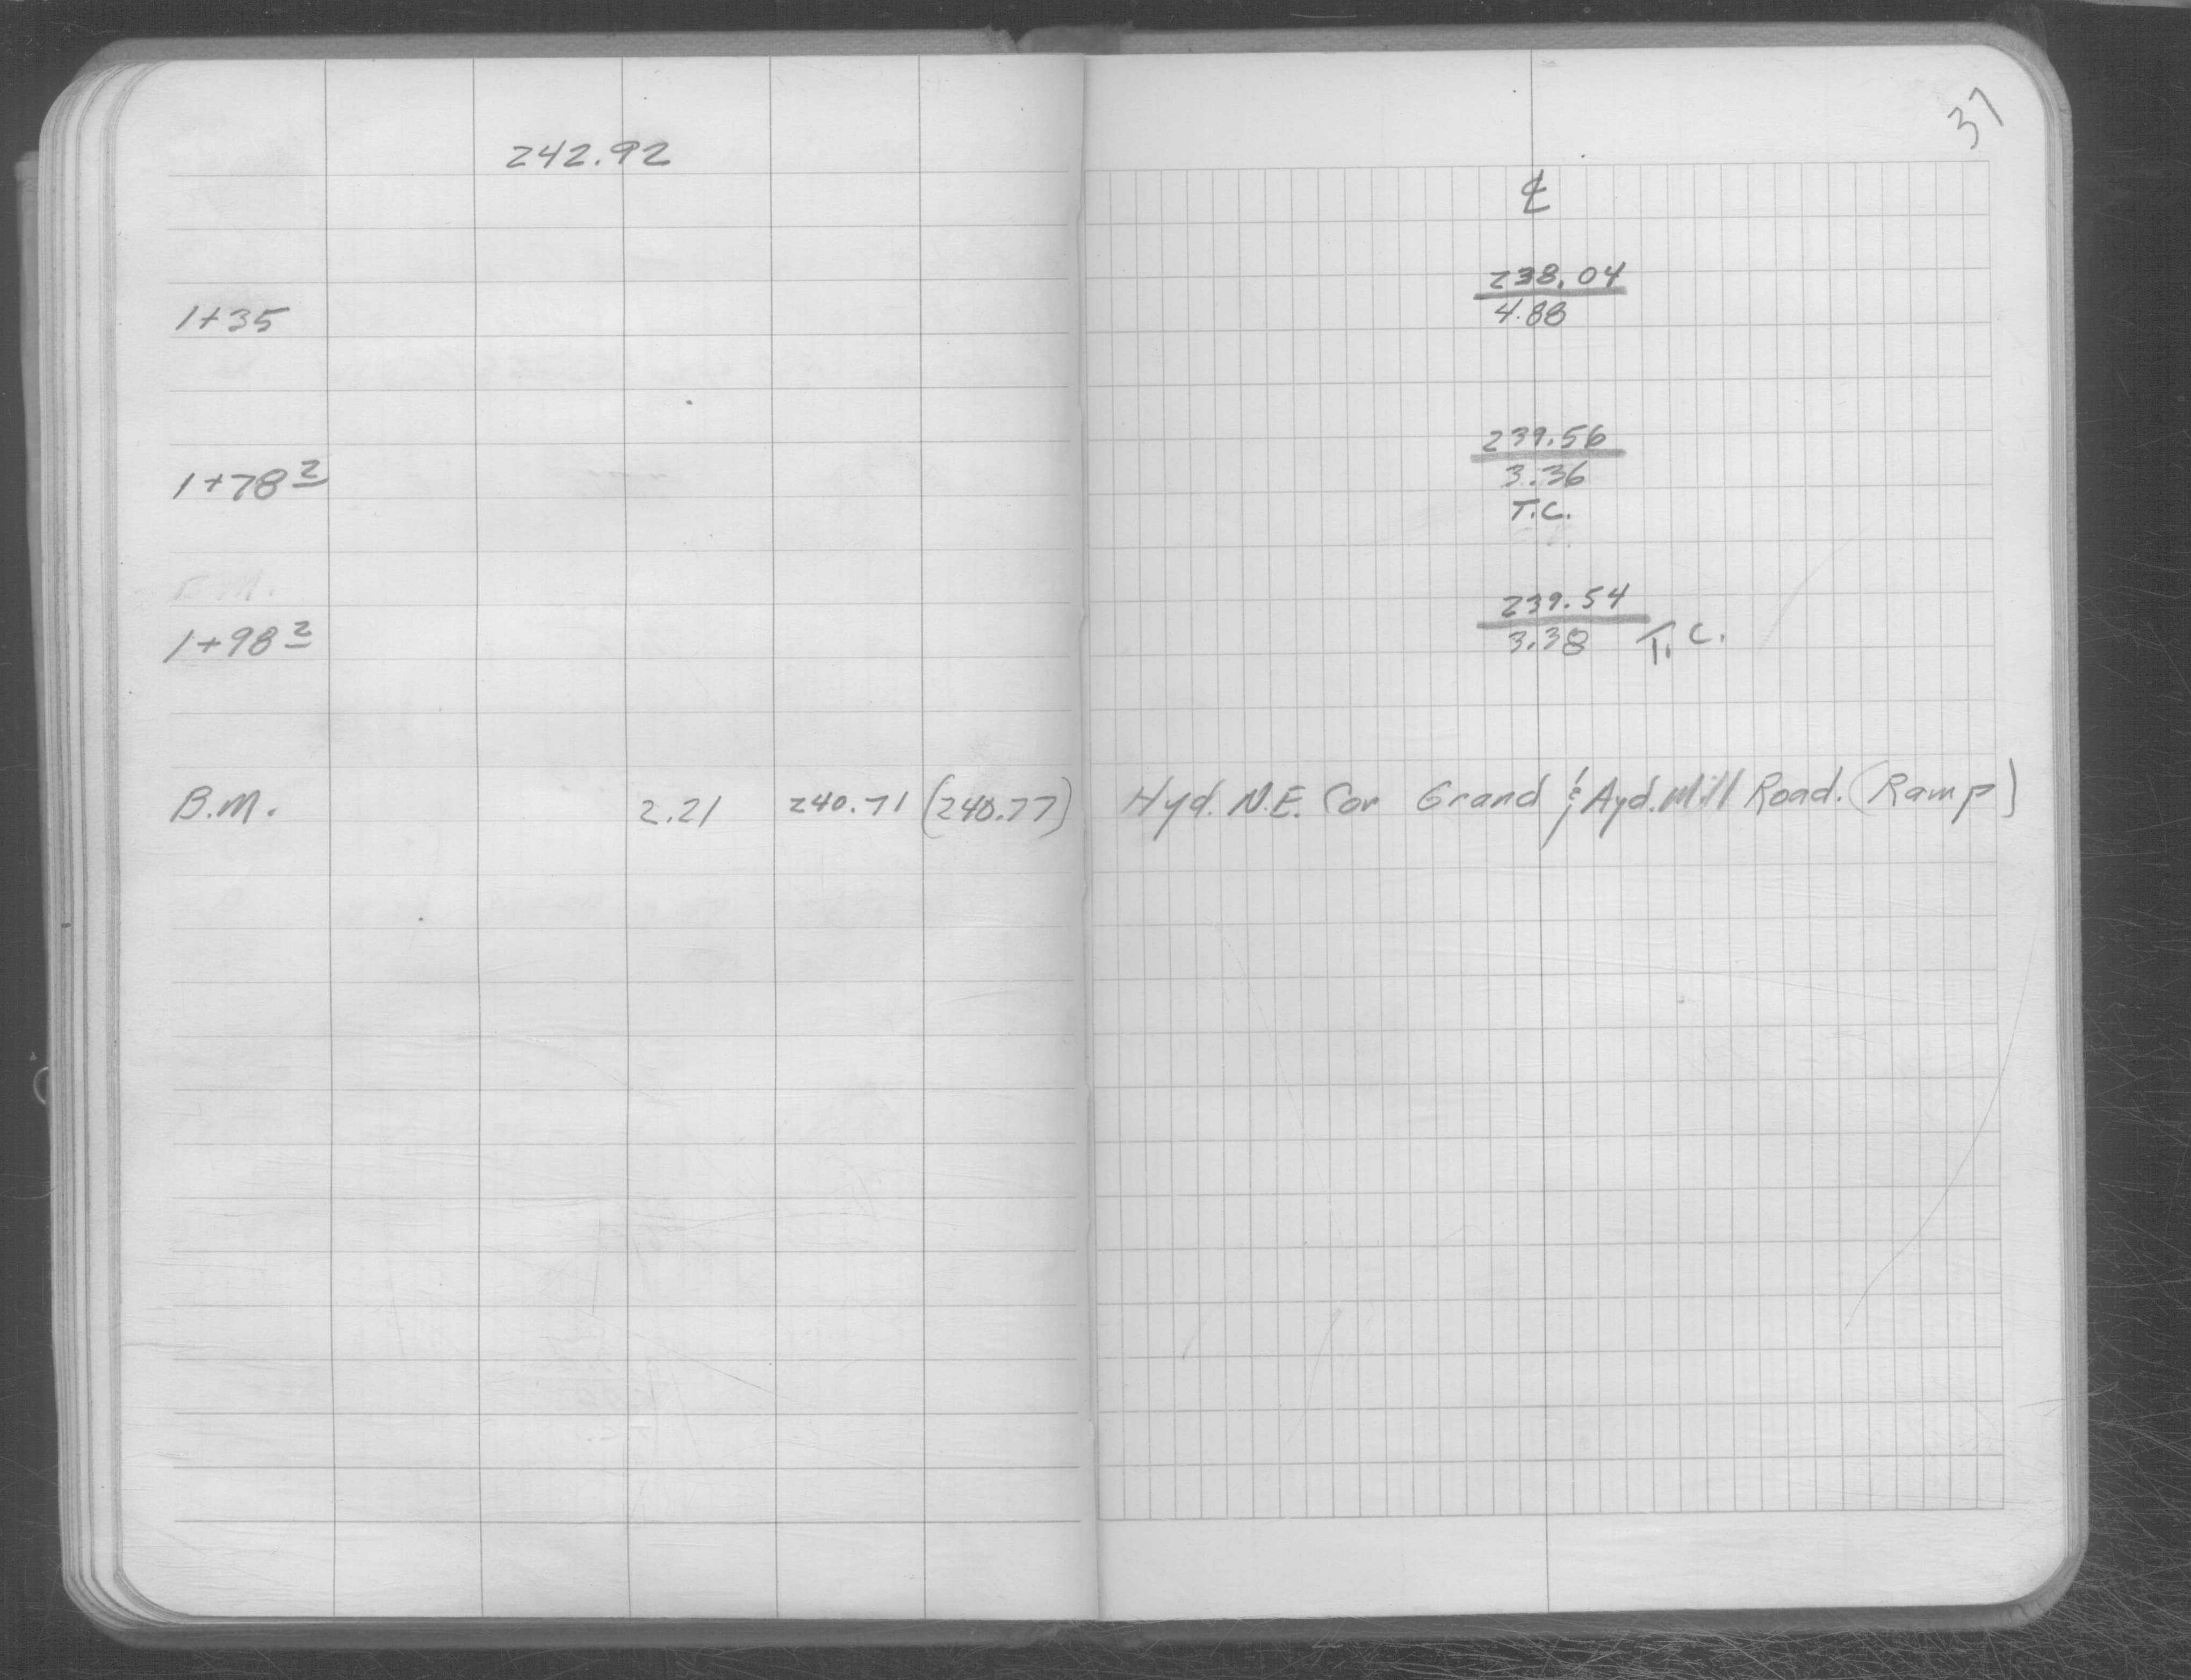 37
242.92
℄
238.04
1+35 4.88
239.56
1+78 2 3.36
T.C.
B.M.
239.54
1+98 2 3.38 T.C.
B.M. 2.21 240.71 (240.77) Hyd. N.E. Cor Grand & Ayd. Mill Road. (Ramp)